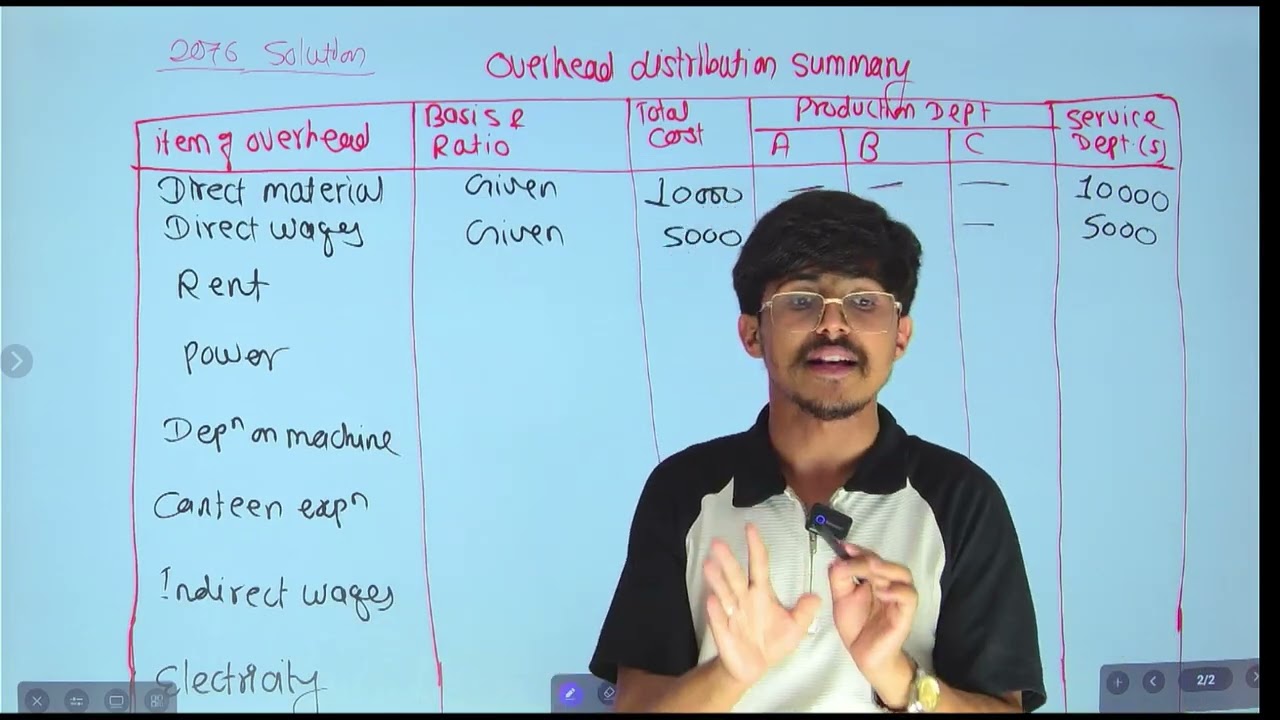 2076 Solution
Overhead distribution summary
item of overhead
Basis &
Ratio
Total
Cost
Production Dept
A B C
Service
Dept.(s)
Direct material Given 10000 — — — 10000
Direct wages Given 5000 — 5000
Rent
Power
Depⁿ on machine
Canteen expⁿ
Indirect wages
Electricity
2/2